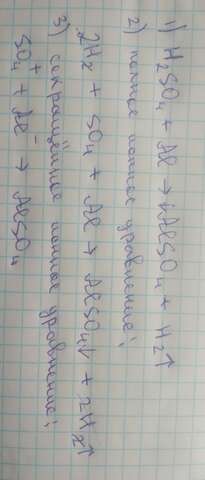 1) H₂SO₄ + Al → AlSO₄ + H₂↑
2) полное ионное уравнение:
2H₂ + SO₄ + Al → AlSO₄↓ + 2H₂↑
3) сокращённое ионное уравнение:
SO₄⁺ + Al⁻ → AlSO₄